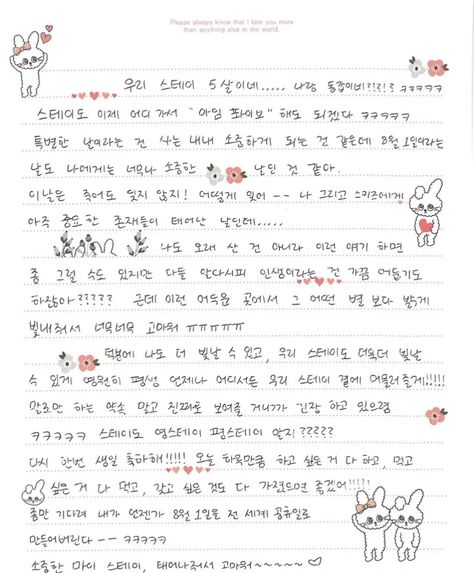 Please always know that I love you more
than anything else in the world.
우리 스테이 5살이네..... 나랑 동갑이네?!?!? ㅋㅋㅋㅋㅋ
스테이도 이제 어디가서 "아임 퐈이브" 해도 되겠다 ㅋㅋㅋㅋㅋ
특별한 날이라는 건 사는 내내 소중하게 되는 건 같은데 8월 1일이라는
날도 나에게는 너무나 소중한 날인 것 같아.
이날은 죽어도 잊지 않지! 어떻게 잊어 -- 나 그리고 스키즈에게
아주 중요한 존재들이 태어난 날인데.....
나도 오래 산 건 아니라 이런 얘기 하면
좀 그럴 수도 있지만 다들 알다시피 인생이라는 건 가끔 어둡기도
하잖아????? 근데 이런 어두운 곳에서 그 어떤 별 보다 밝게
빛내줘서 너무너무 고마워 ㅠㅠㅠㅠㅠ
덕분에 나도 더 빛날 수 있고, 우리 스테이도 더욱더 빛날
수 있게 영원히 평생 언제나 어디서든 우리 스테이 곁에 머물러줄게!!!!!
말로만 하는 약속 말고 진짜로 보여줄 거니까 긴장 하고 있으렴
ㅋㅋㅋㅋㅋ 스테이도 영스테이 평스테이 알지?????
다시 한번 생일 축하해!!!!! 오늘 하루만큼 하고 싶은 거 다 하고, 먹고
싶은 거 다 먹고, 갖고 싶은 것도 다 가졌으면 좋겠어!!!!!
좀만 기다려 내가 언젠가 8월 1일을 전 세계 공휴일로
만들어버린다 ~ ㅋㅋㅋㅋㅋ
소중한 마이 스테이, 태어나줘서 고마워~~~~♡